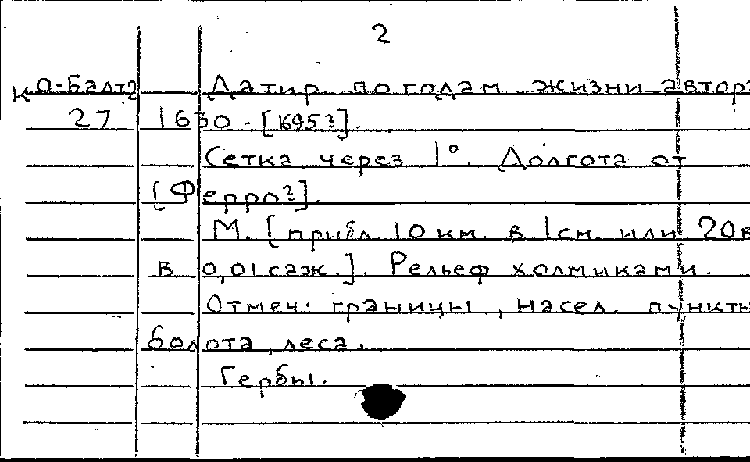 2
К О-Балт2 Датир. по годам жизни автора
27 1630 - [1695?].
Сетка через 1°. Долгота от
[Ферро?].
М. [прибл. 10 км. в 1 см. или 20 в
в 0,01 саж.]. Рельеф холмиками.
Отмеч: границы, насел. пункты
болота, леса.
Гербы.